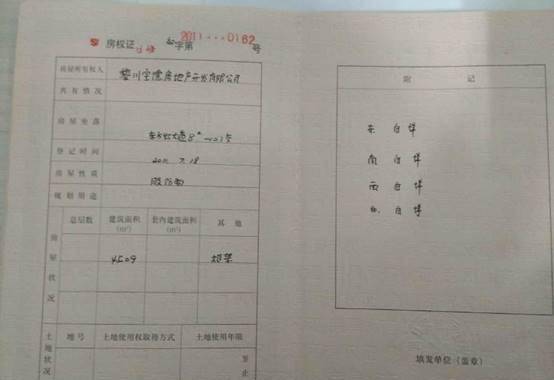 房权证 字第 2011---0162 号
房屋所有权人 房地产开发有限公司
共有情况
房屋坐落
登记时间 2011.7.18
房屋性质 股份制
规划用途
房屋状况
总层数 建筑面积(m²) 套内建筑面积(m²) 其他
4509 框架
土地状况
地号 土地使用权取得方式 土地使用年限
至
止
附记
东 自墙
南 自墙
西 自墙
北 自墙
填发单位（盖章）